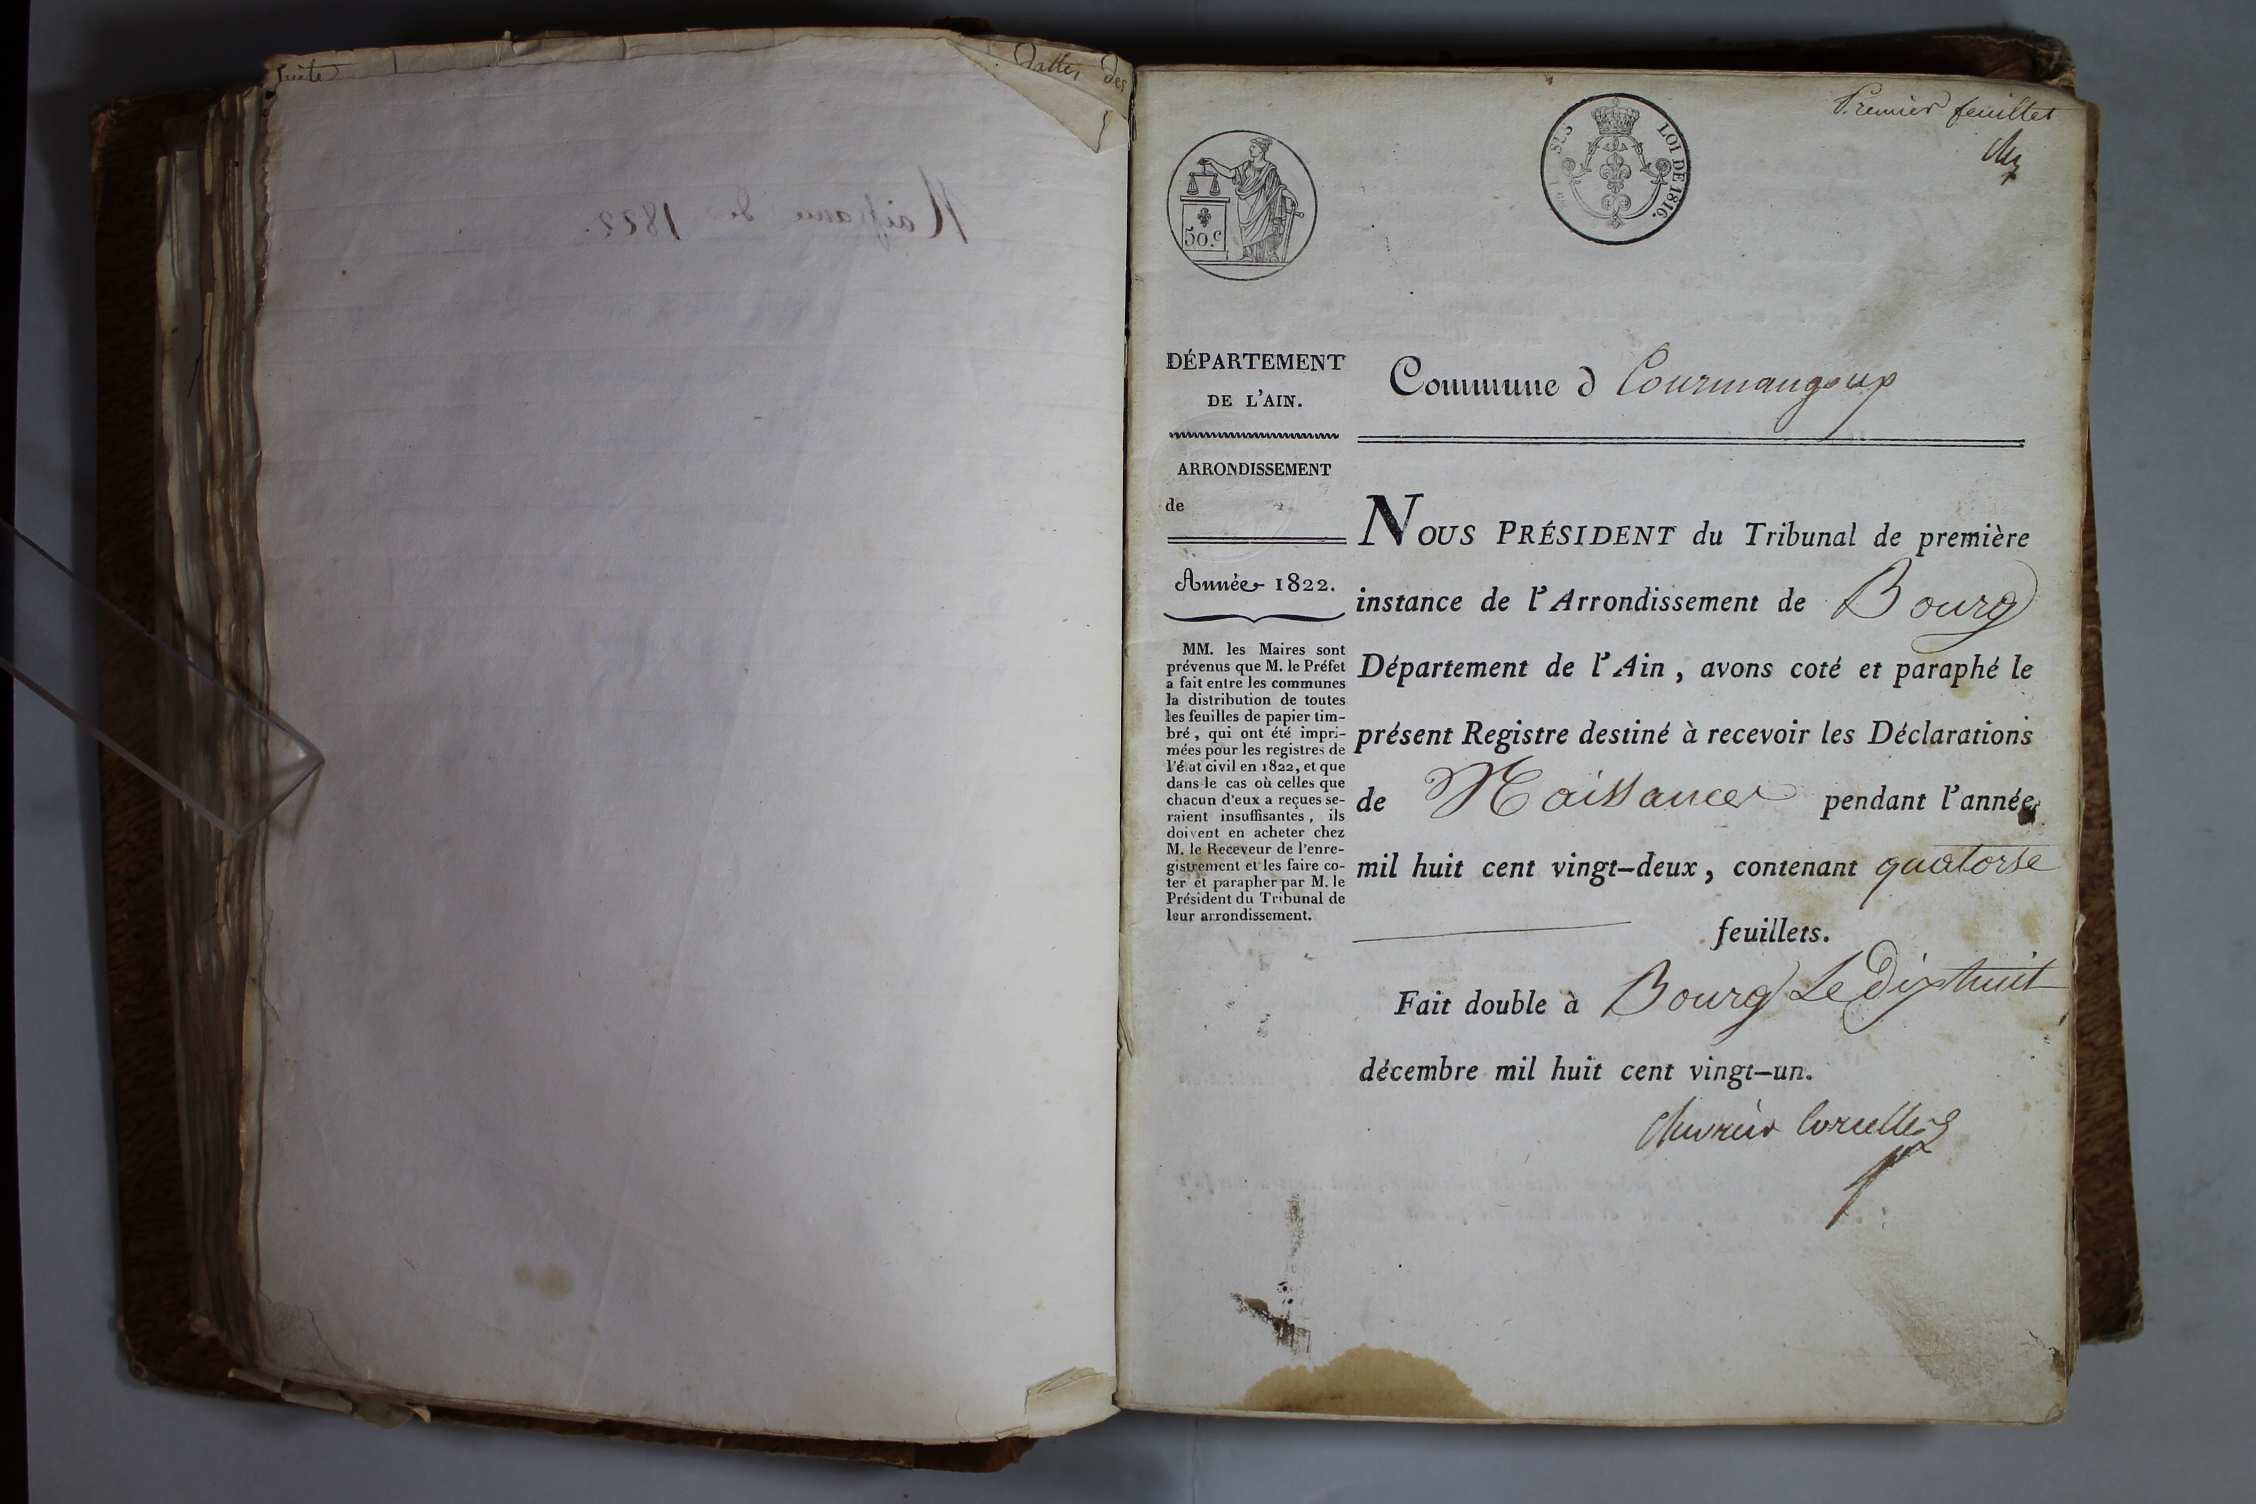 suite
Dattes des
Naissance de 1822.
Premier feuillet
50.C
LOI DE 1816.
DÉPARTEMENT
DE L'AIN.
ARRONDISSEMENT
de
Année 1822.
MM. les Maires sont
prévenus que M. le Préfet
a fait entre les communes
la distribution de toutes
les feuilles de papier tim-
bré, qui ont été impri-
mées pour les registres de
l'état civil en 1822, et que
dans le cas où celles que
chacun d'eux a reçues se-
raient insuffisantes, ils
doivent en acheter chez
M. le Receveur de l'enre-
gistrement et les faire co-
ter et parapher par M. le
Président du Tribunal de
leur arrondissement.
Commune d Courmangoux
NOUS PRÉSIDENT du Tribunal de première
instance de l'Arrondissement de Bourg
Département de l'Ain, avons coté et paraphé le
présent Registre destiné à recevoir les Déclarations
de Naissances pendant l'année
mil huit cent vingt-deux, contenant quatorse
feuillets.
Fait double à Bourg Le dixhuit
décembre mil huit cent vingt-un.